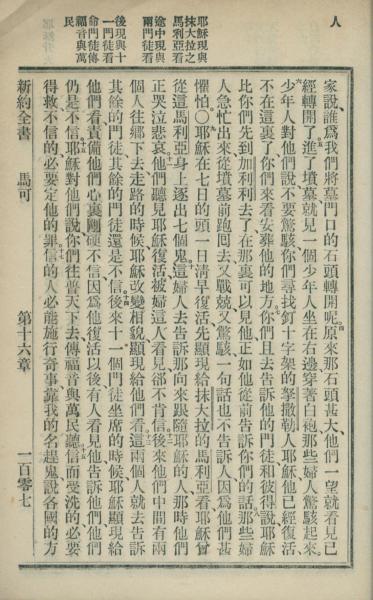 人
耶穌現與
抹大拉之
馬利亞看
途中現與
兩門徒看
後現與十
一門徒看
命門徒傳
福音與萬
民
家說、誰爲我們將墓門口的石頭轉開呢。原來那石頭甚大、他們一望、就看見已
經轉開了、進了墳墓、就見一個少年人坐在右邊、穿著白袍、那些婦人驚駭起來。
少年人對他們說、不要驚駭、你們尋找釘十字架的拏撒勒人耶穌、他已經復活、
不在這裏了、你們來看安葬他的地方。你們且去告訴他的門徒和彼得說、耶穌
比你們先到加利利去了、在那裏可以見他、正如他從前告訴你們的話。那些婦
人急忙出來、從墳墓前跑囘去、又戰兢又驚駭、一句話也不告訴人、因爲他們甚
懼怕。○耶穌在七日的頭一日清早復活、先顯現給抹大拉的馬利亞看、耶穌曾
從這馬利亞身上逐出七個鬼。這婦人去告訴那向來跟隨耶穌的人、那時他們
正哭泣悲哀。他們聽見耶穌復活、被婦這人看見、卻不肯信。後來他們中間有兩
個人往鄉下去、走路的時候、耶穌改變相貌、顯現給他們看。這兩個人就去告訴
其餘的門徒、其餘的門徒還是不信。後來十一個門徒坐席的時候、耶穌顯現給
他們看、責備他們心裏剛硬不信、因爲他復活以後、有人看見他、告訴他們、他們
仍是不信。耶穌對他們說、你們往普天下去、傳福音與萬民聽。信而受洗的必要
得救、不信的必要定他的罪。信的人必能施行奇事、靠我的名趕鬼、說各國的方
新約全書 馬可 第十六章 一百零七